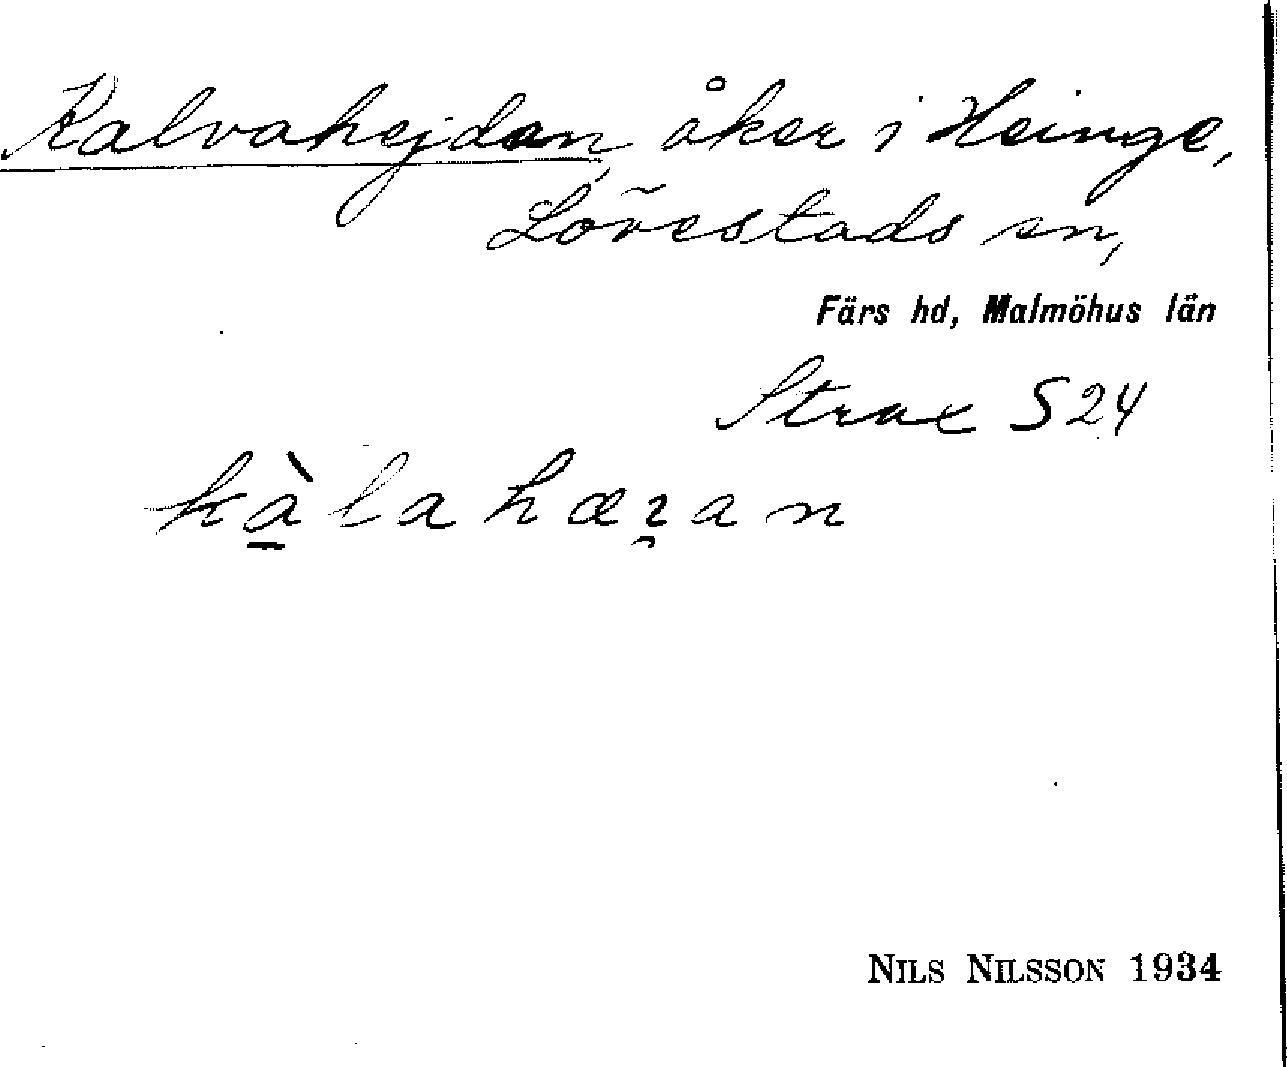 Kalvahejdan, åker i Heinge,
Lövestads sn,
Färs hd, Malmöhus län
Strax S 24
kà̱lahæɀ̯an
NILS NILSSON 1934